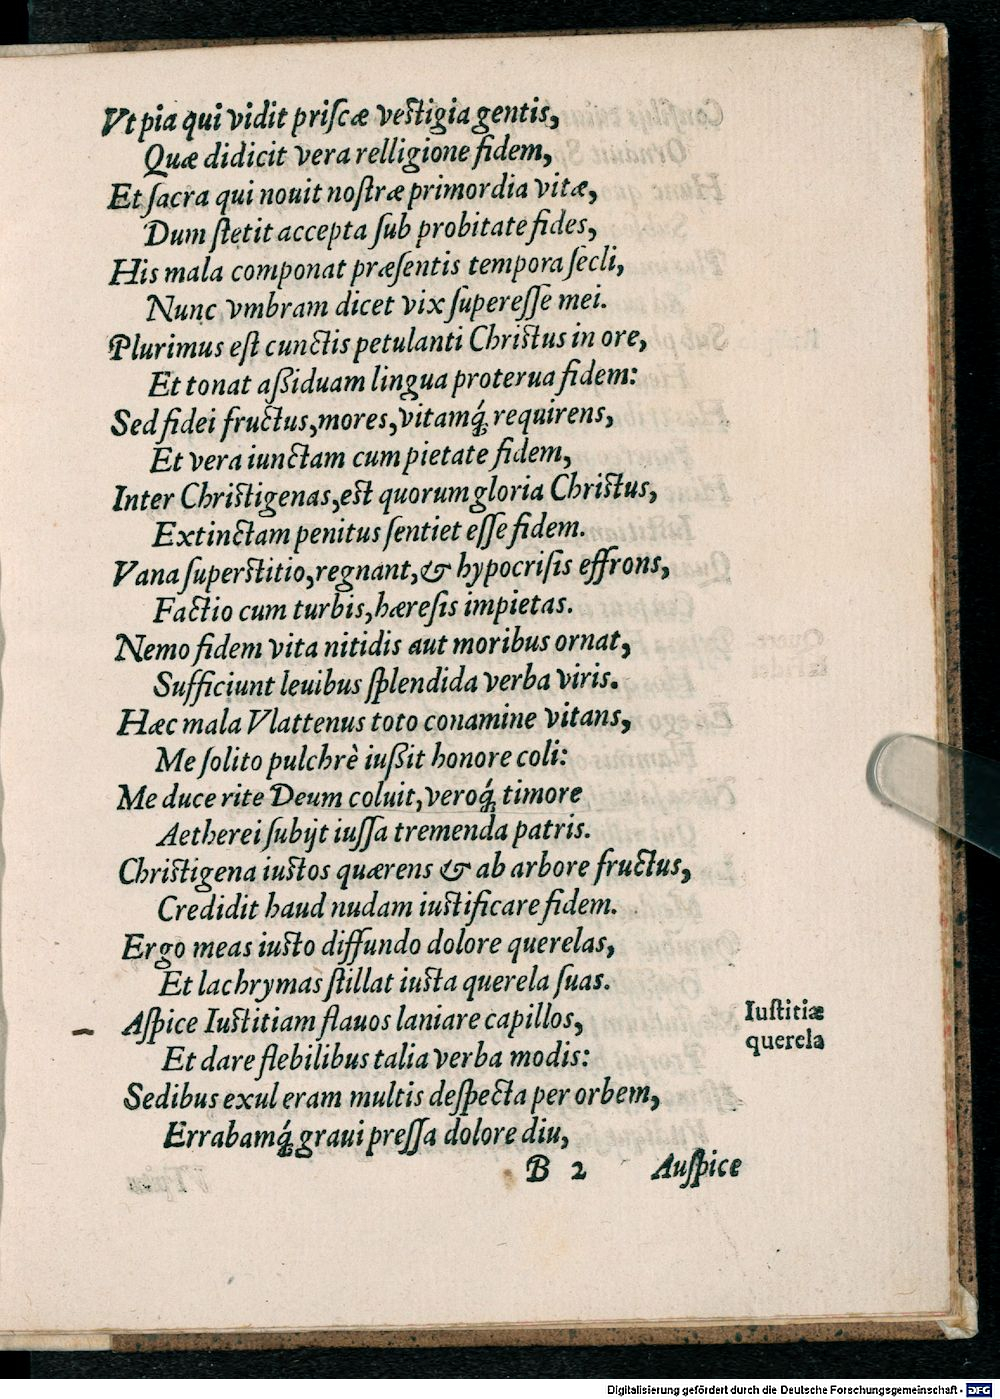 Vt pia qui vidit priſcæ veſtigia gentis,
Quæ didicit vera relligione fidem,
Et ſacra qui nouit noſtræ primordia vitæ,
Dum ſtetit accepta ſub probitate fides,
His mala componat præſentis tempora ſecli,
Nunc vmbram dicet vix ſupereſſe mei.
Plurimus eſt cunctis petulanti Chriſtus in ore,
Et tonat aßiduam lingua proterua fidem:
Sed fidei fructus, mores, vitamq́; requirens,
Et vera iunctam cum pietate fidem,
Inter Chriſtigenas, eſt quorum gloria Chriſtus,
Extinctam penitus ſentiet eſſe fidem.
Vana ſuperſtitio, regnant, & hypocriſis effrons,
Factio cum turbis, hæreſis impietas.
Nemo fidem vita nitidis aut moribus ornat,
Sufficiunt leuibus ſplendida verba viris.
Hæc mala Vlattenus toto conamine vitans,
Me ſolito pulchrè iußit honore coli:
Me duce rite Deum coluit, veroq́; timore
Aetherei ſubijt iuſſa tremenda patris.
Chriſtigena iuſtos quærens & ab arbore fructus,
Credidit haud nudam iuſtificare fidem.
Ergo meas iuſto diffundo dolore querelas,
Et lachrymas ſtillat iuſta querela ſuas.
Aſpice Iuſtitiam flauos laniare capillos,
Iuſtitiæ
querela
Et dare flebilibus talia verba modis:
Sedibus exul eram multis deſpecta per orbem,
Errabamq́; graui preſſa dolore diu,
B 2 Auſpice
Digitalisierung gefördert durch die Deutsche Forschungsgemeinschaft - DFG